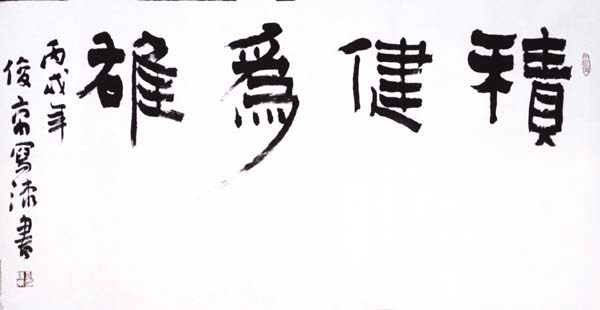 積健為雄
丙戌年
俊寫漆書